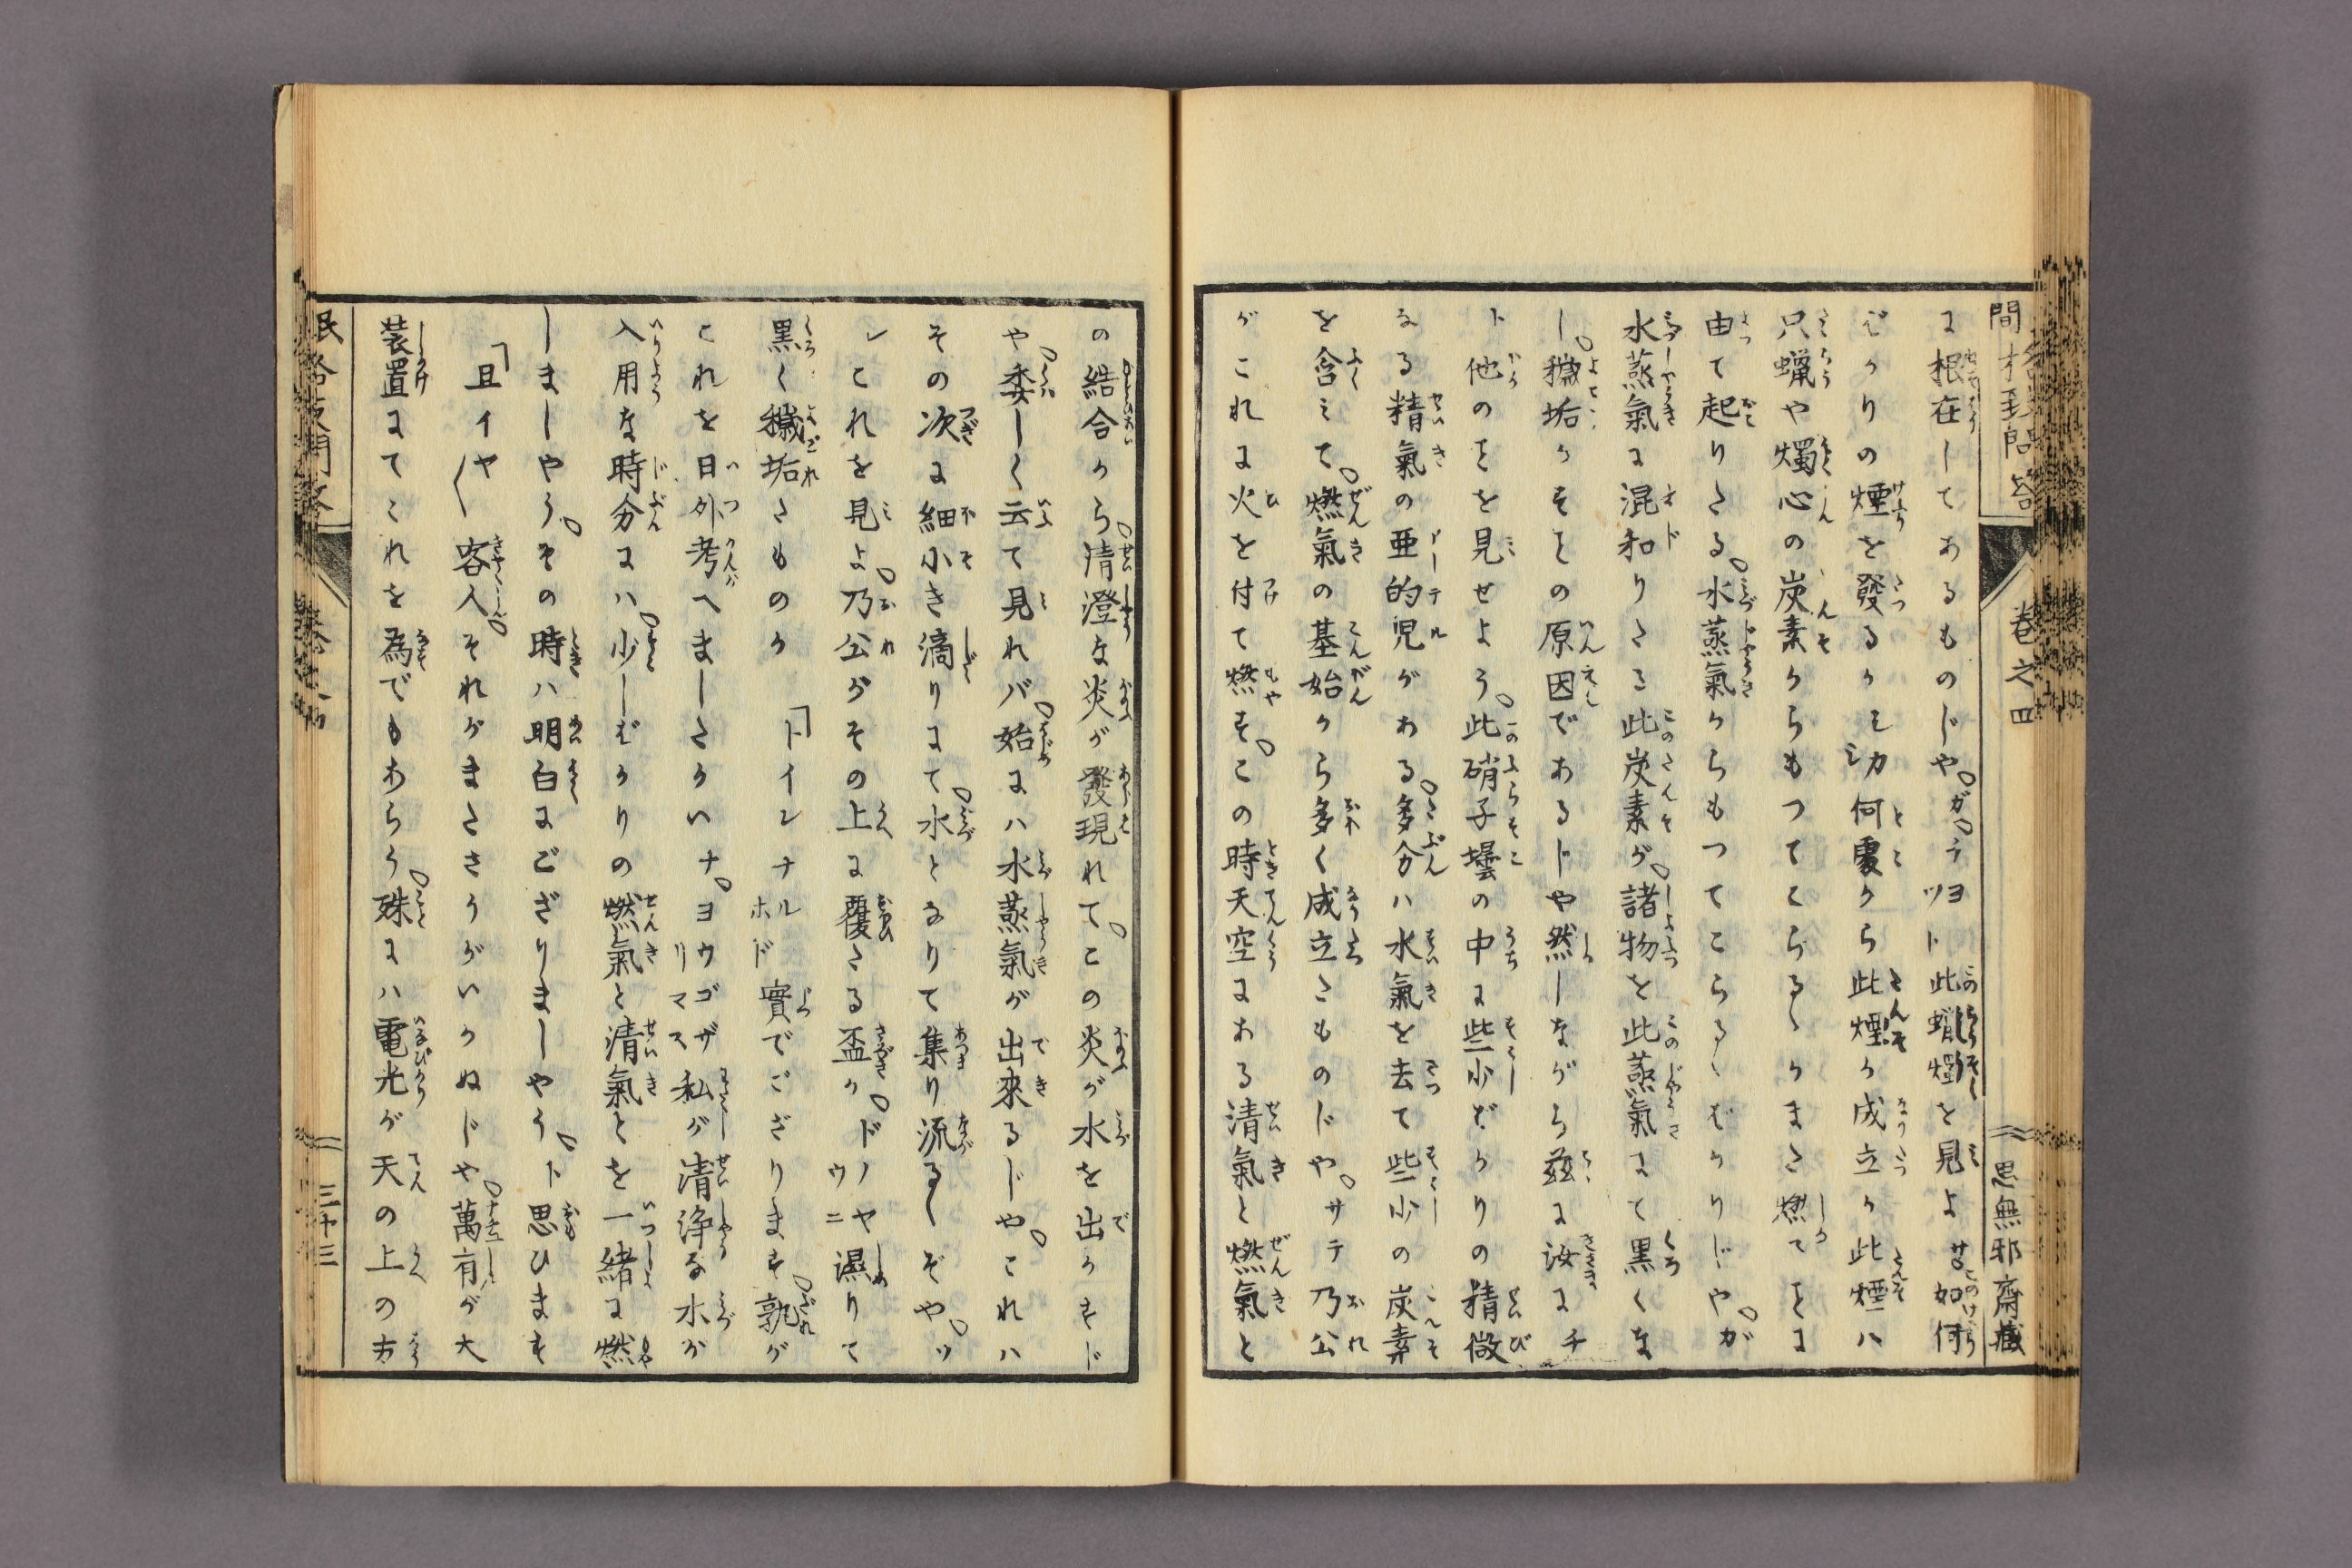 卷之四
思無邪齋藏
に根在してあるものじや。ガ、チヨツト此蝋燭を見よ
ばかりの煙を發るか
何處から此煙が成立か此煙ハ
只蝋や燭心の炭素からもつてくらる
燃て
由て起りたる。水蒸氣からもつてこらるゝばかりじや。が
水蒸氣に混和りたる此炭素が。諸物を此蒸氣にて黒くな
し。穢垢
の原因であるじや然しながら茲に汝にチ
ト他の
を見せよう。此硝子壜の中に些少ばかりの精微
なる精氣の亜的児がある。多分ハ水氣を去て些少の炭素
を含
て。燃氣の基始から多く成立たものじや。サテ乃公
がこれに火を付て燃す。この時天空にある清氣と燃氣と
の結合から。清澄な炎が發現れて。この炎が水を出かすじ
や。委しく云て見れバ。始にハ水蒸氣が出來るじや。これハ
その次に細小き滴りにて。水となりて集り流るゝぞや。ソ
レこれを見よ。乃公がその上に覆たる盃が。ドノヤウニ濕りて
黒く穢垢たものか 「トイレナルホド實でござります。孰が
これを日外考へましたかいナ。ヨウゴザリマス私が清淨な水が
入用な時分にハ。少しばかりの燃氣と清氣とを一緒に燃
しましやう。その時ハ明白にござりましやう。ト思ひます
「且イヤ〳〵客人。それがまたさうがいかぬじや。萬有が大
装置にてこれを為でもあらう。殊にハ電光が天の上の方
三十三